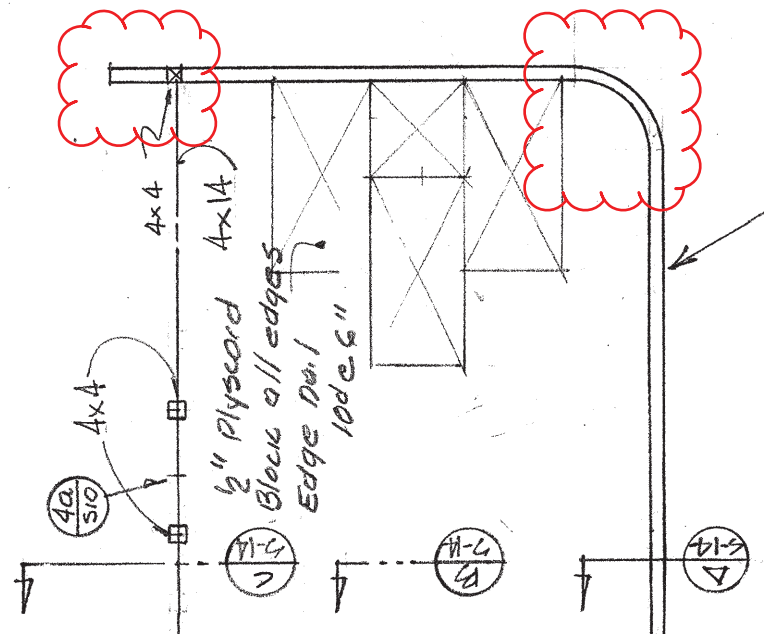 4x4
4x14
1/2" Plyscord
Block all edges
Edge Nail
10d @ 6"
4x4
4a
S10
C
S-14
B
S-14
A
S-14